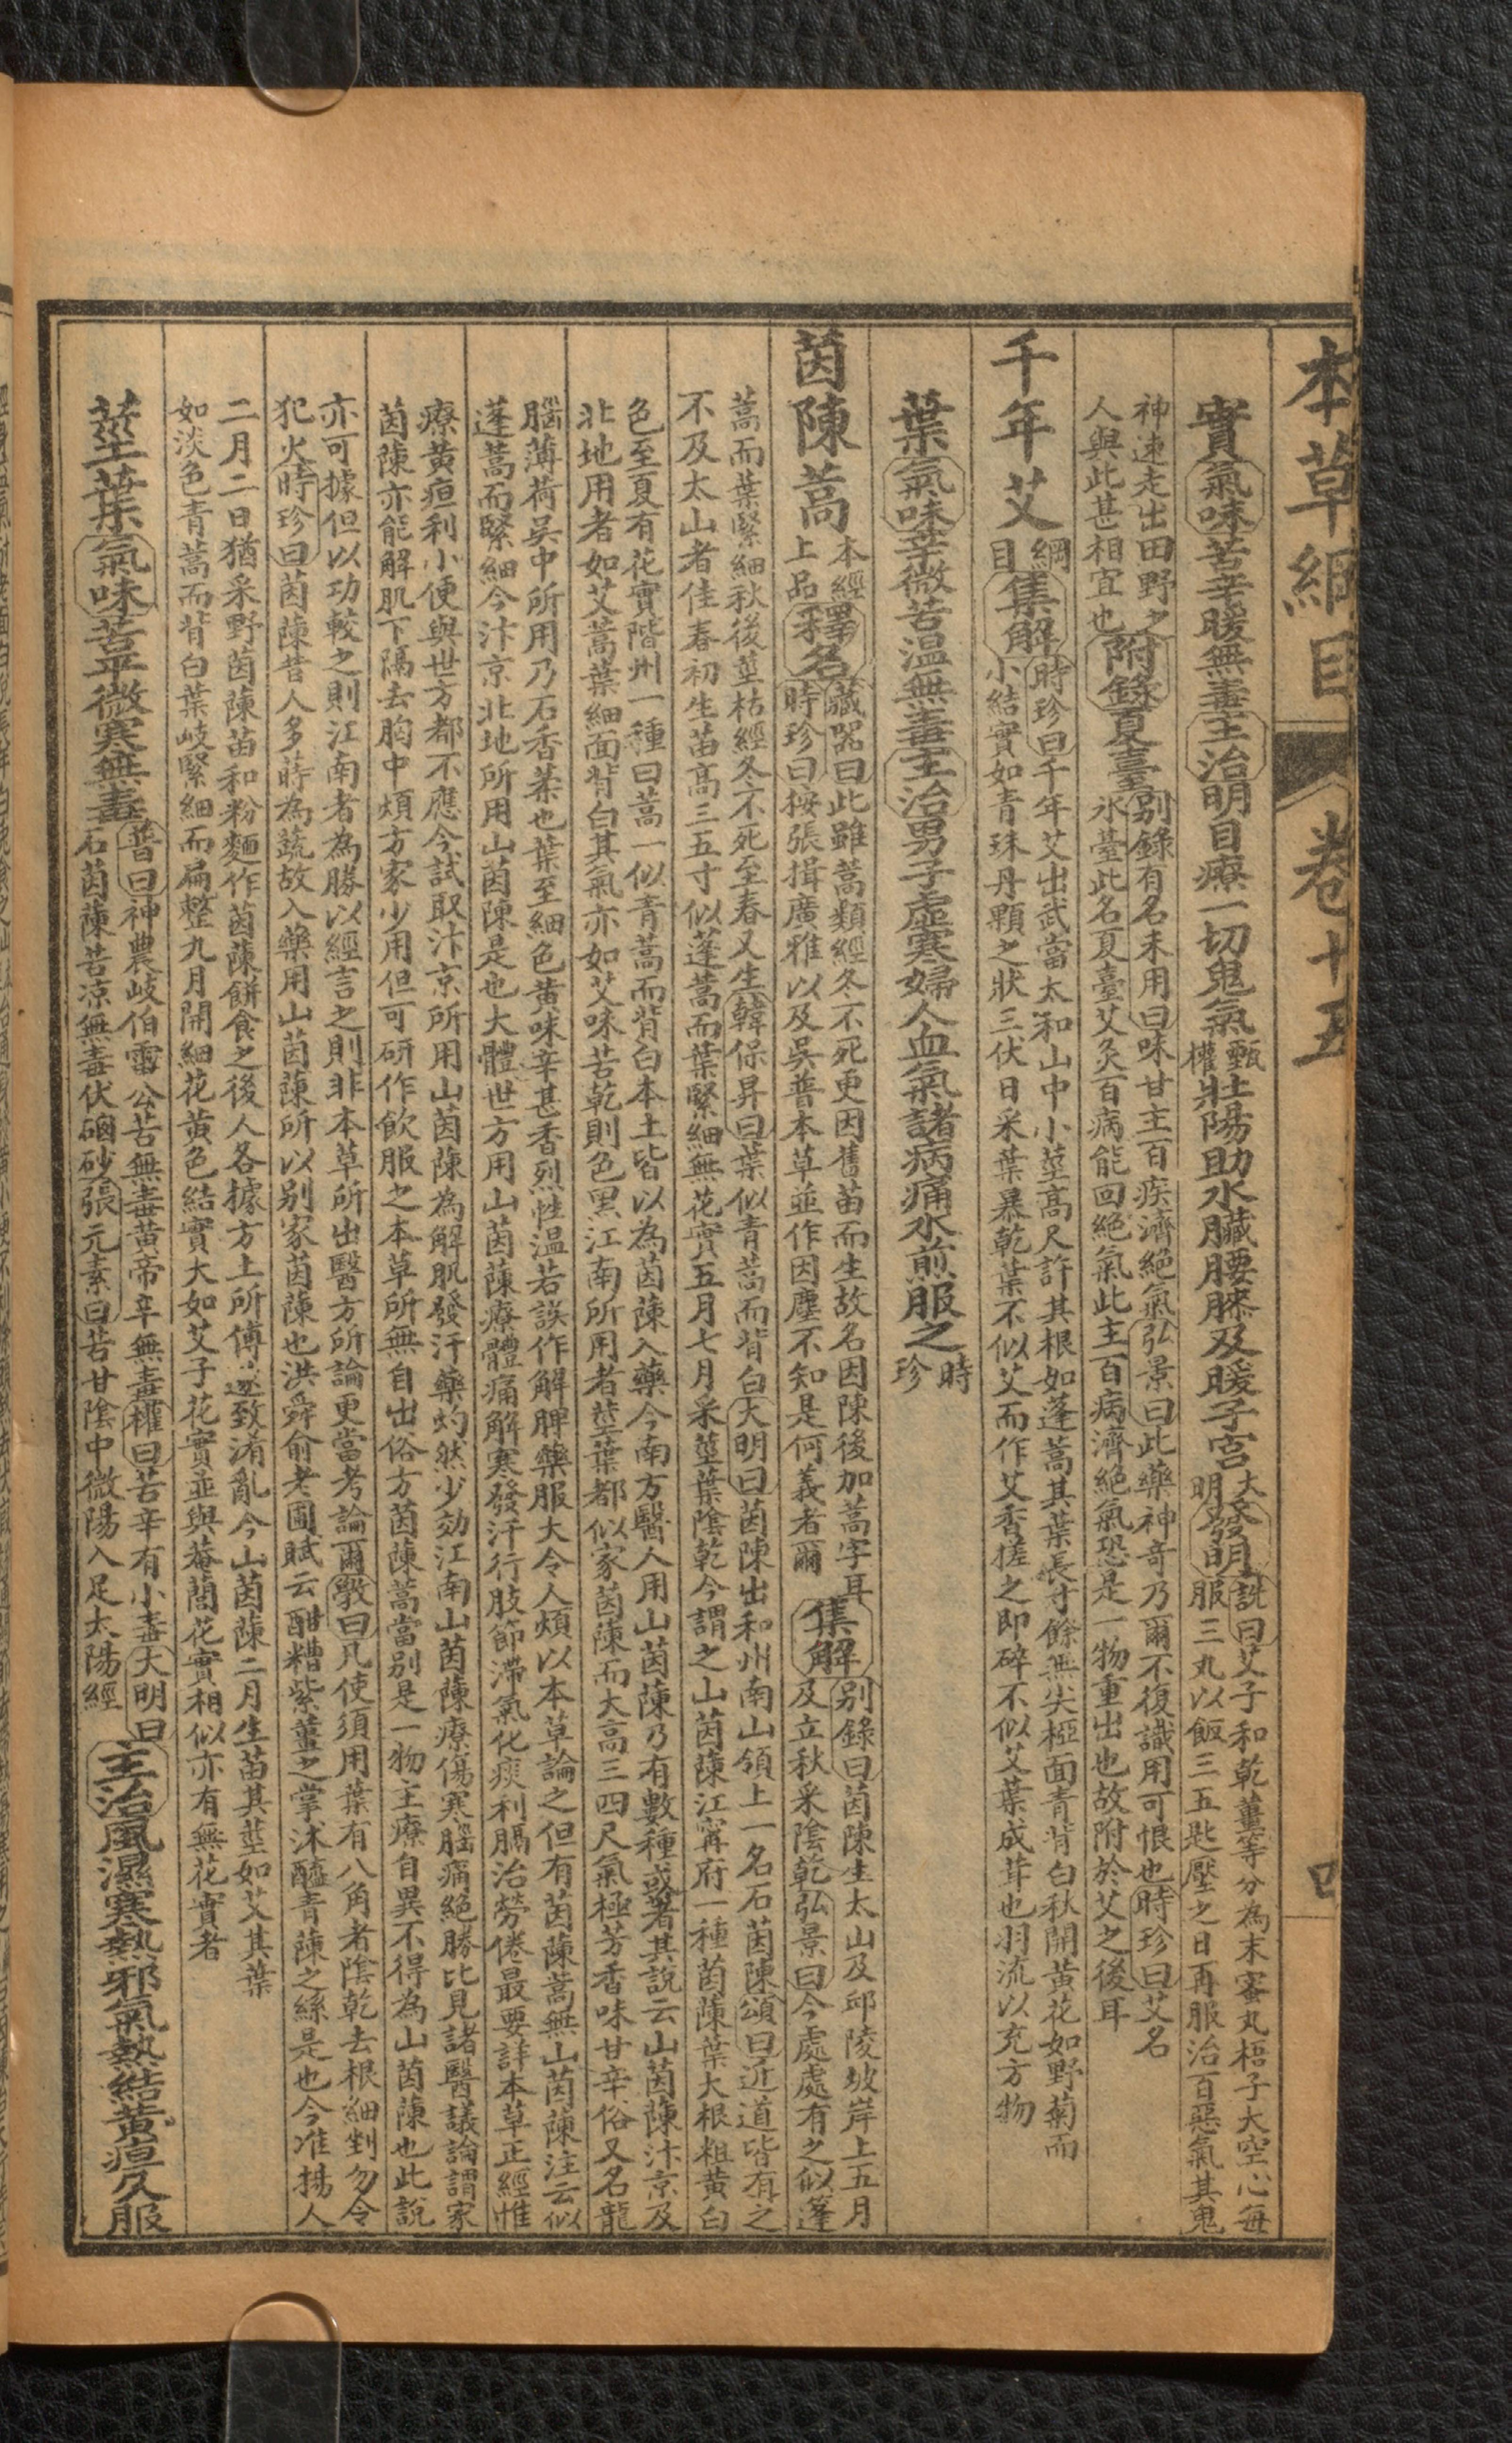 本草綱目 卷十五 四
實氣味苦辛暖無毒主治明目療一切鬼氣甄權壯陽助水臟腰膝及暖子宮大明發明詵曰艾子和乾薑等分為末蜜丸梧子大空心每服三丸以飯三五匙壓之日再服治百惡氣其鬼
神速走出田野之人與此甚相宜也附錄夏臺別錄有名未用曰味甘主百疾濟絕氣弘景曰此藥神奇乃爾不復識用可恨也時珍曰艾名氷臺此名夏臺艾灸百病能回絕氣此主百病濟絕氣恐是一物重出也故附於艾之後耳
千年艾綱目集解時珍曰千年艾出武當太和山中小莖高尺許其根如蓬蒿其葉長寸餘無尖椏面青背白秋開黃花如野菊而小結實如青珠丹顆之狀三伏日采葉暴乾葉不似艾而作艾香搓之即碎不似艾葉成茸也羽流以充方物
葉氣味辛微苦温無毒主治男子虛寒婦人血氣諸病痛水煎服之時珍
茵陳蒿本經上品釋名藏器曰此雖蒿類經冬不死更因舊苗而生故名因陳後加蒿字耳時珍曰按張揖廣雅以及吳普本草並作因塵不知是何義者爾集解別錄曰茵陳生太山及邱陵坡岸上五月及立秋采陰乾弘景曰今處處有之似蓬
蒿而葉緊細秋後莖枯經冬不死至春又生韓保昇曰葉似青蒿而背白大明曰茵陳出和州南山嶺上一名石茵陳頌曰近道皆有之
不及太山者佳春初生苗高三五寸似蓬蒿而葉緊細無花實五月七月采莖葉陰乾今謂之山茵陳江寧府一種茵陳葉大根粗黃白
色至夏有花實階州一種曰蒿一似青蒿而背白本土皆以為茵陳入藥今南方醫人用山茵陳乃有數種或著其說云山茵陳汴京及
北地用者如艾蒿葉細面背白其氣亦如艾味苦乾則色黑江南所用者莖葉都似家茵陳而大高三四尺氣極芳香味甘辛俗又名龍
腦薄荷吳中所用乃石香葇也葉至細色黃味辛甚香烈性温若誤作解脾藥服大令人煩以本草論之但有茵陳蒿無山茵陳注云似
蓬蒿而緊細今汴京北地所用山茵陳是也大體世方用山茵陳療體痛解寒發汗行肢節滯氣化痰利膈治勞倦最要詳本草正經惟
療黃疸利小便與世方都不應今試取汴京所用山茵陳為解肌發汗藥灼然少効江南山茵陳療傷寒腦痛絕勝比見諸醫議論謂家
茵陳亦能解肌下隔去胸中煩方家少用但可研作飲服之本草所無自出俗方茵陳蒿當別是一物主療自異不得為山茵陳也此說
亦可據但以功較之則江南者為勝以經言之則非本草所出醫方所論更當考論爾斅曰凡使須用葉有八角者陰乾去根細剉勿令
犯火時珍曰茵陳昔人多蒔為蔬故入藥用山茵陳所以別家茵陳也洪舜俞老圃賦云酣糟紫薑之掌沐醯青陳之絲是也今淮揚人
二月二日猶采野茵陳苗和粉麵作茵陳餅食之後人各據方土所傳遂致淆亂今山茵陳二月生苗其莖如艾其葉
如淡色青蒿而背白葉岐緊細而扁整九月開細花黃色結實大如艾子花實並與菴䕡花實相似亦有無花實者
莖葉氣味苦平微寒無毒普曰神農岐伯雷公苦無毒黃帝辛無毒權曰苦辛有小毒大明曰石茵陳苦涼無毒伏硇砂張元素曰苦甘陰中微陽入足太陽經主治風濕寒熱邪氣熱結黃疸久服